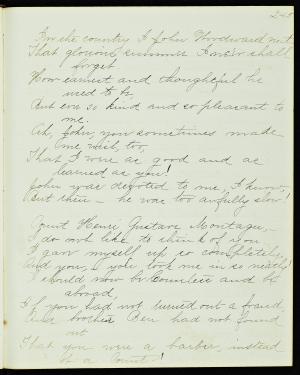 245
In the country I John Woodward met
That glorious summer I ne'er shall
forget
How earnest and thoughtful he
used to be
But ever so kind and so pleasant to
me.
Ah, John, you sometimes made
me wish, too,
That I were as good and as
learned as you!
John was devoted to me, I know,
But then - he was too awfully slow!
Count Henri Gustave Montague,
I do not like to think of you
I gave myself up so completely,
And you, you took me in so neatly!
I should now be Countess and be
abroad,
If you had not turned out a fraud
And brother Ben had not found
out
That you were a barber, instead
of a Count!